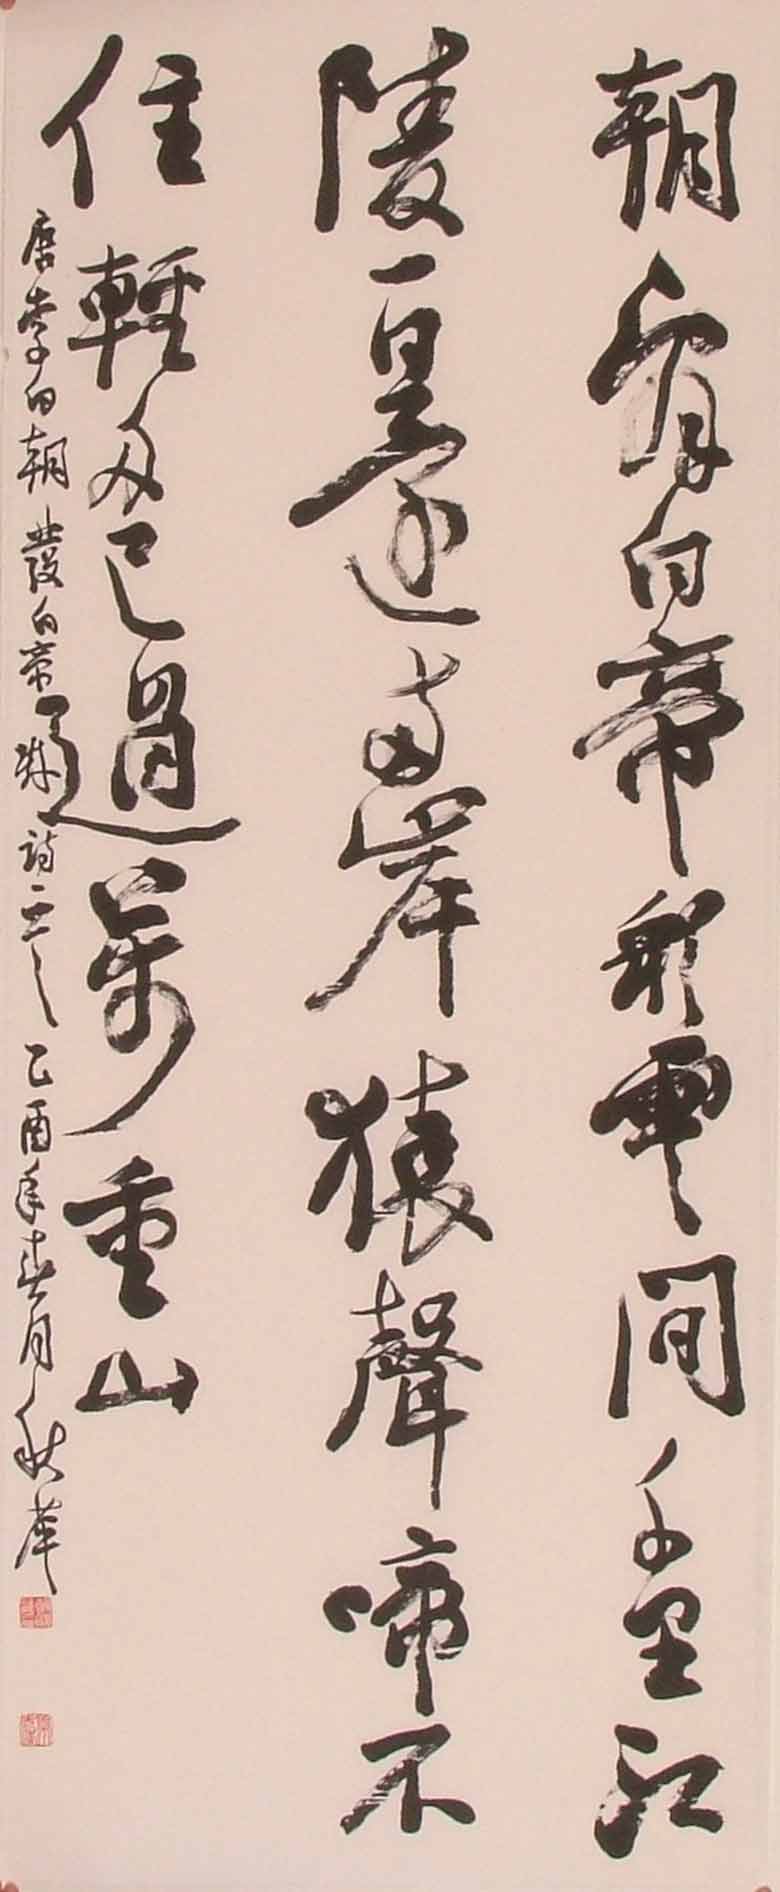 朝辞白帝彩雲間千里江
陵一日還兩岸猿聲啼不
住輕舟已過萬重山
唐李白朝發白帝城詩一首 乙酉年春月秋華